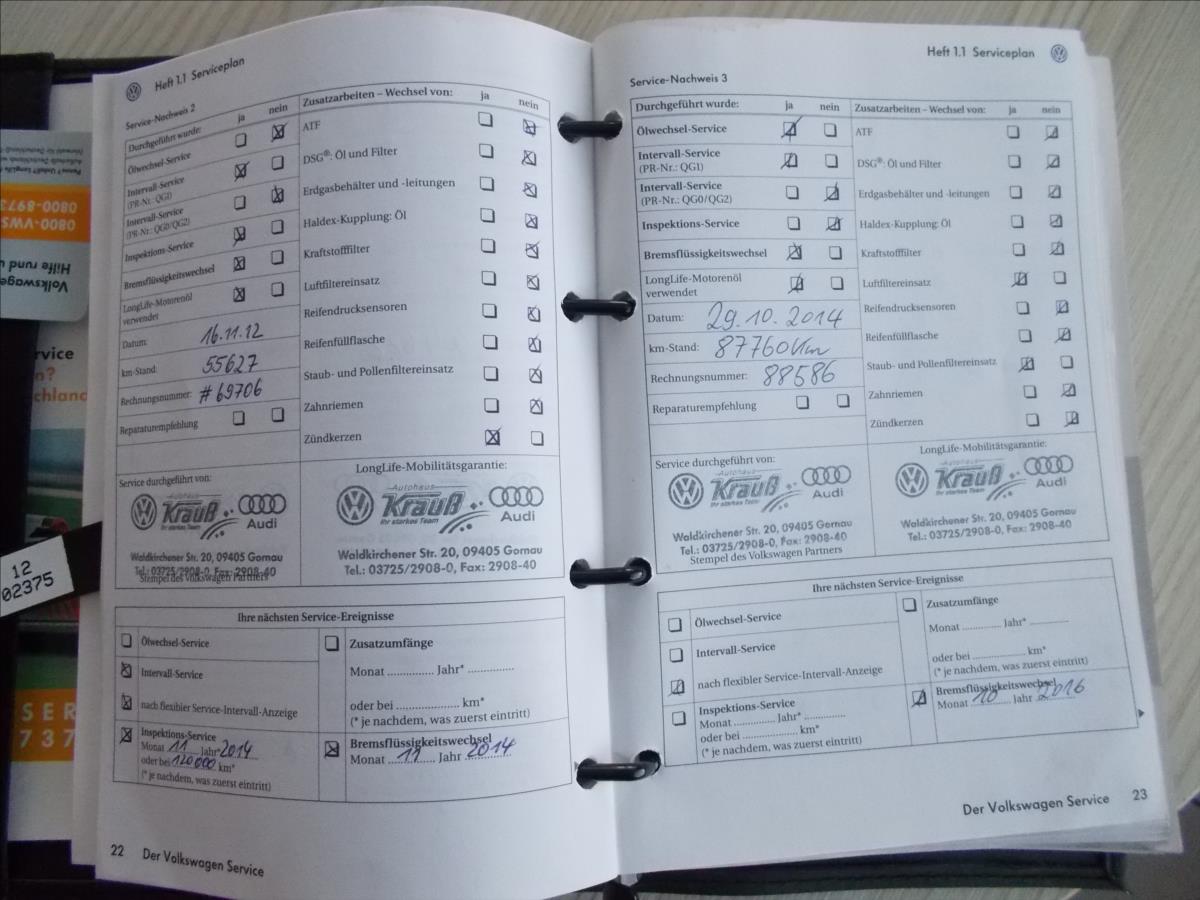 Heft 1.1 Serviceplan
Service-Nachweis 2
Durchgeführt wurde: ja nein
Ölwechsel-Service
Intervall-Service
(PR-Nr.: QG1)
Intervall-Service
(PR-Nr.: QG0/QG2)
Inspektions-Service
Bremsflüssigkeitswechsel
LongLife-Motorenöl
verwendet
Datum: 16.11.12
km-Stand: 55627
Rechnungsnummer: #69706
Reparaturempfehlung
Zusatzarbeiten – Wechsel von: ja nein
ATF
DSG®: Öl und Filter
Erdgasbehälter und -leitungen
Haldex-Kupplung: Öl
Kraftstofffilter
Luftfiltereinsatz
Reifendrucksensoren
Reifenfüllflasche
Staub- und Pollenfiltereinsatz
Zahnriemen
Zündkerzen
Service durchgeführt von:
Autohaus
Krauß
Ihr starkes Team
Audi
Waldkirchener Str. 20, 09405 Gornau
Tel.: 03725/2908-0, Fax: 2908-40
Stempel des Volkswagen Partners
LongLife-Mobilitätsgarantie:
Autohaus
Krauß
Ihr starkes Team
Audi
Waldkirchener Str. 20, 09405 Gornau
Tel.: 03725/2908-0, Fax: 2908-40
Ihre nächsten Service-Ereignisse
Ölwechsel-Service
Intervall-Service
nach flexibler Service-Intervall-Anzeige
Inspektions-Service
Monat 11 Jahr* 2014
oder bei 120000 km*
(* je nachdem, was zuerst eintritt)
Zusatzumfänge
Monat ............ Jahr* ............
oder bei .................... km*
(* je nachdem, was zuerst eintritt)
Bremsflüssigkeitswechsel
Monat 11 Jahr 2014
22 Der Volkswagen Service
Heft 1.1 Serviceplan
Service-Nachweis 3
Durchgeführt wurde: ja nein
Ölwechsel-Service
Intervall-Service
(PR-Nr.: QG1)
Intervall-Service
(PR-Nr.: QG0/QG2)
Inspektions-Service
Bremsflüssigkeitswechsel
LongLife-Motorenöl
verwendet
Datum: 29.10.2014
km-Stand: 87760 Km
Rechnungsnummer: 88586
Reparaturempfehlung
Zusatzarbeiten – Wechsel von: ja nein
ATF
DSG®: Öl und Filter
Erdgasbehälter und -leitungen
Haldex-Kupplung: Öl
Kraftstofffilter
Luftfiltereinsatz
Reifendrucksensoren
Reifenfüllflasche
Staub- und Pollenfiltereinsatz
Zahnriemen
Zündkerzen
Service durchgeführt von:
Autohaus
Krauß
Ihr starkes Team
Audi
Waldkirchener Str. 20, 09405 Gornau
Tel.: 03725/2908-0, Fax: 2908-40
Stempel des Volkswagen Partners
LongLife-Mobilitätsgarantie:
Autohaus
Krauß
Ihr starkes Team
Audi
Waldkirchener Str. 20, 09405 Gornau
Tel.: 03725/2908-0, Fax: 2908-40
Ihre nächsten Service-Ereignisse
Ölwechsel-Service
Intervall-Service
nach flexibler Service-Intervall-Anzeige
Inspektions-Service
Monat ............ Jahr* ............
oder bei .................... km*
(* je nachdem, was zuerst eintritt)
Zusatzumfänge
Monat ............ Jahr* ............
oder bei .................... km*
(* je nachdem, was zuerst eintritt)
Bremsflüssigkeitswechsel
Monat 10 Jahr 2016
Der Volkswagen Service 23
0800-8973
0800-VWS
Hilfe rund
Volkswage
rvice
n?
chland
12
02375
SER
737